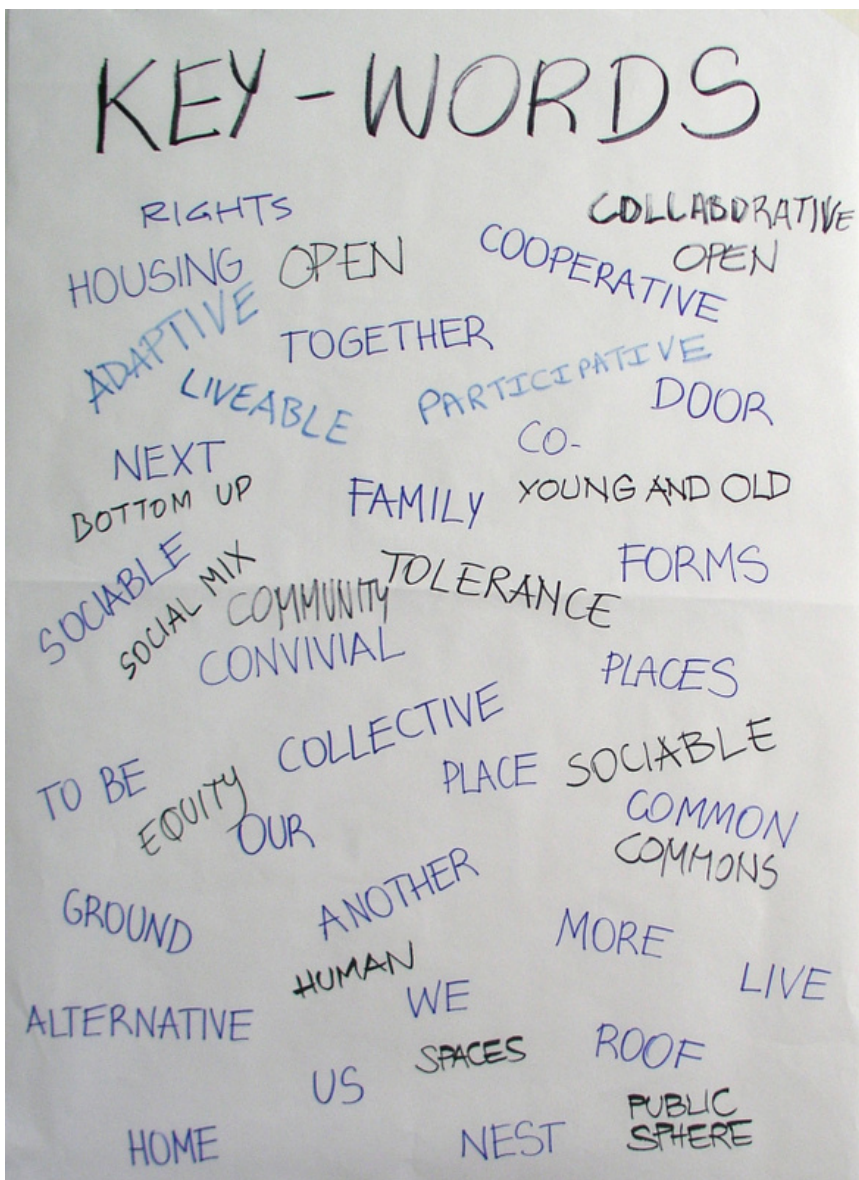 KEY-WORDS
RIGHTS
COLLABORATIVE
HOUSING
OPEN
COOPERATIVE
OPEN
ADAPTIVE
TOGETHER
PARTICIPATIVE
LIVEABLE
DOOR
CO-
NEXT
BOTTOM UP
FAMILY
YOUNG AND OLD
SOCIABLE
SOCIAL MIX
COMMUNITY
TOLERANCE
FORMS
CONVIVIAL
PLACES
COLLECTIVE
TO BE
PLACE
SOCIABLE
EQUITY
OUR
COMMON
COMMONS
GROUND
ANOTHER
MORE
HUMAN
LIVE
WE
ALTERNATIVE
SPACES
ROOF
US
PUBLIC
SPHERE
HOME
NEST